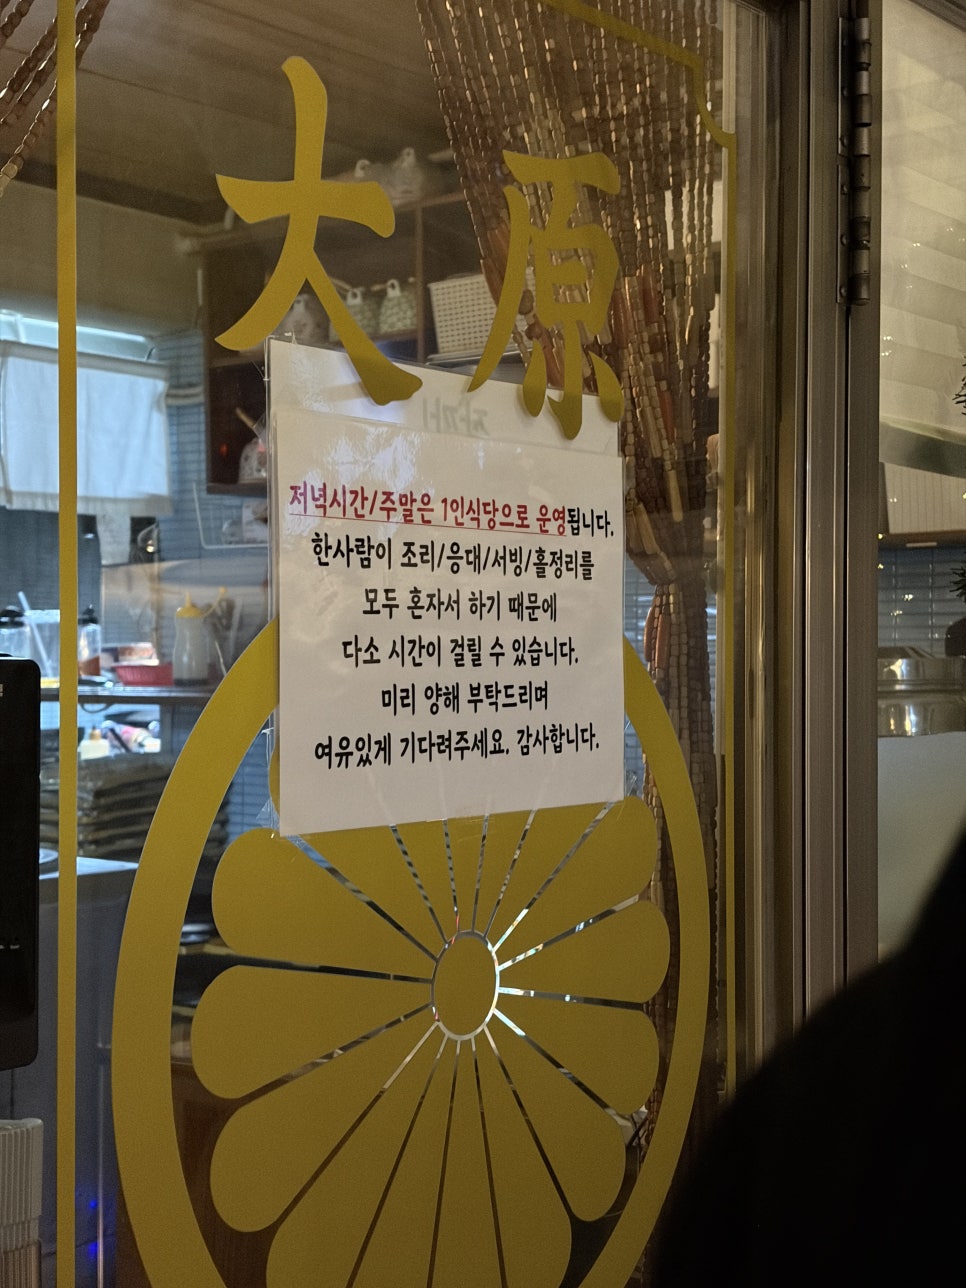 大原
저녁시간/주말은 1인식당으로 운영됩니다.
한사람이 조리/응대/서빙/홀정리를
모두 혼자서 하기 때문에
다소 시간이 걸릴 수 있습니다.
미리 양해 부탁드리며
여유있게 기다려주세요. 감사합니다.